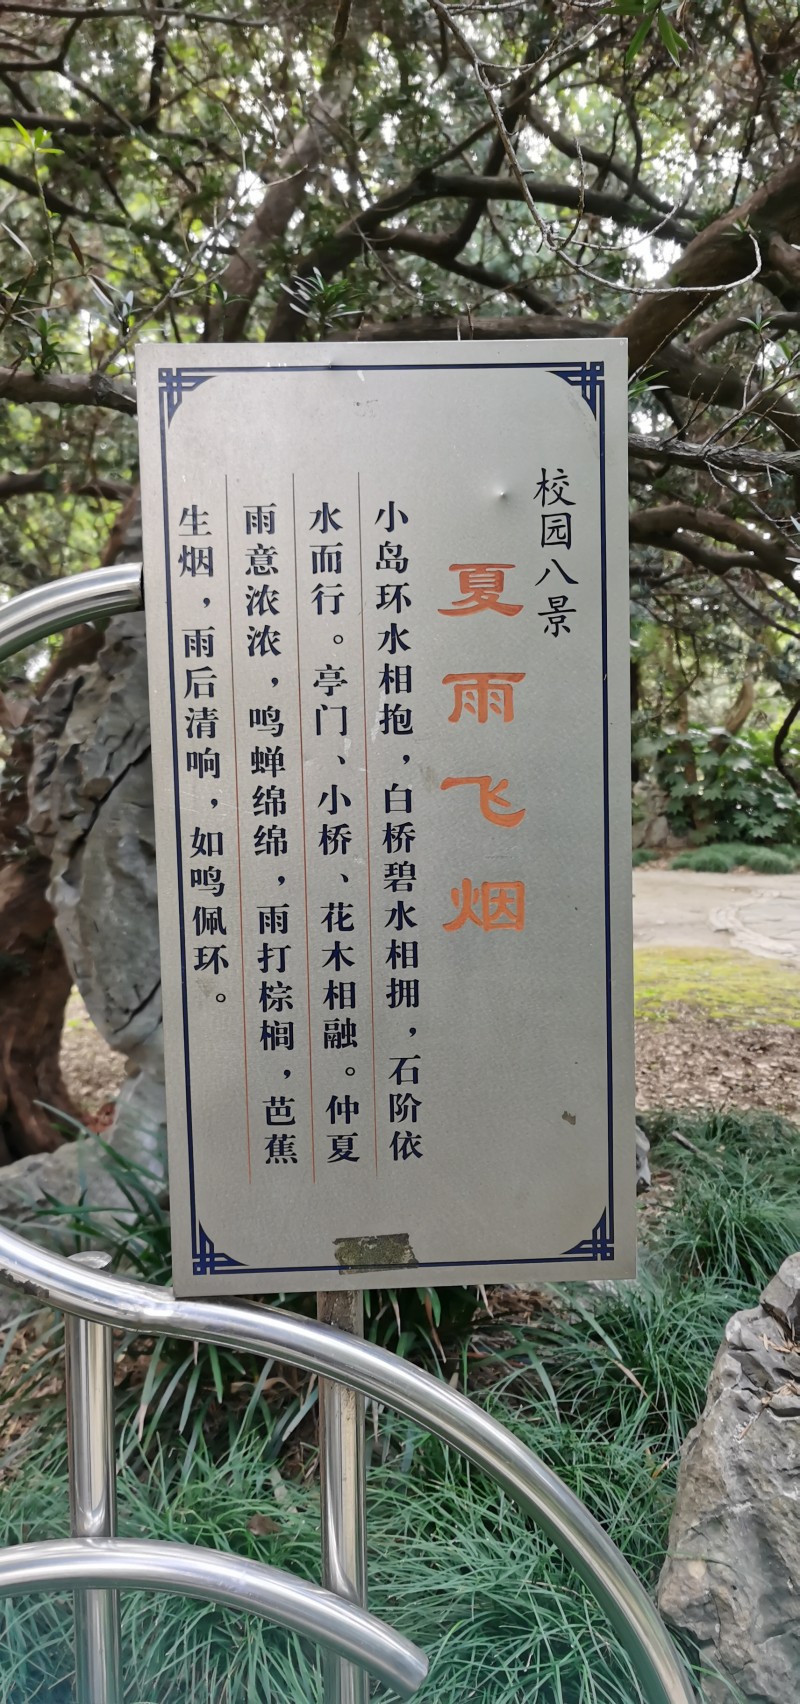 校园八景
夏雨飞烟
小岛环水相抱，白桥碧水相拥，石阶依
水而行。亭门、小桥、花木相融。仲夏
雨意浓浓，鸣蝉绵绵，雨打棕榈，芭蕉
生烟，雨后清响，如鸣佩环。